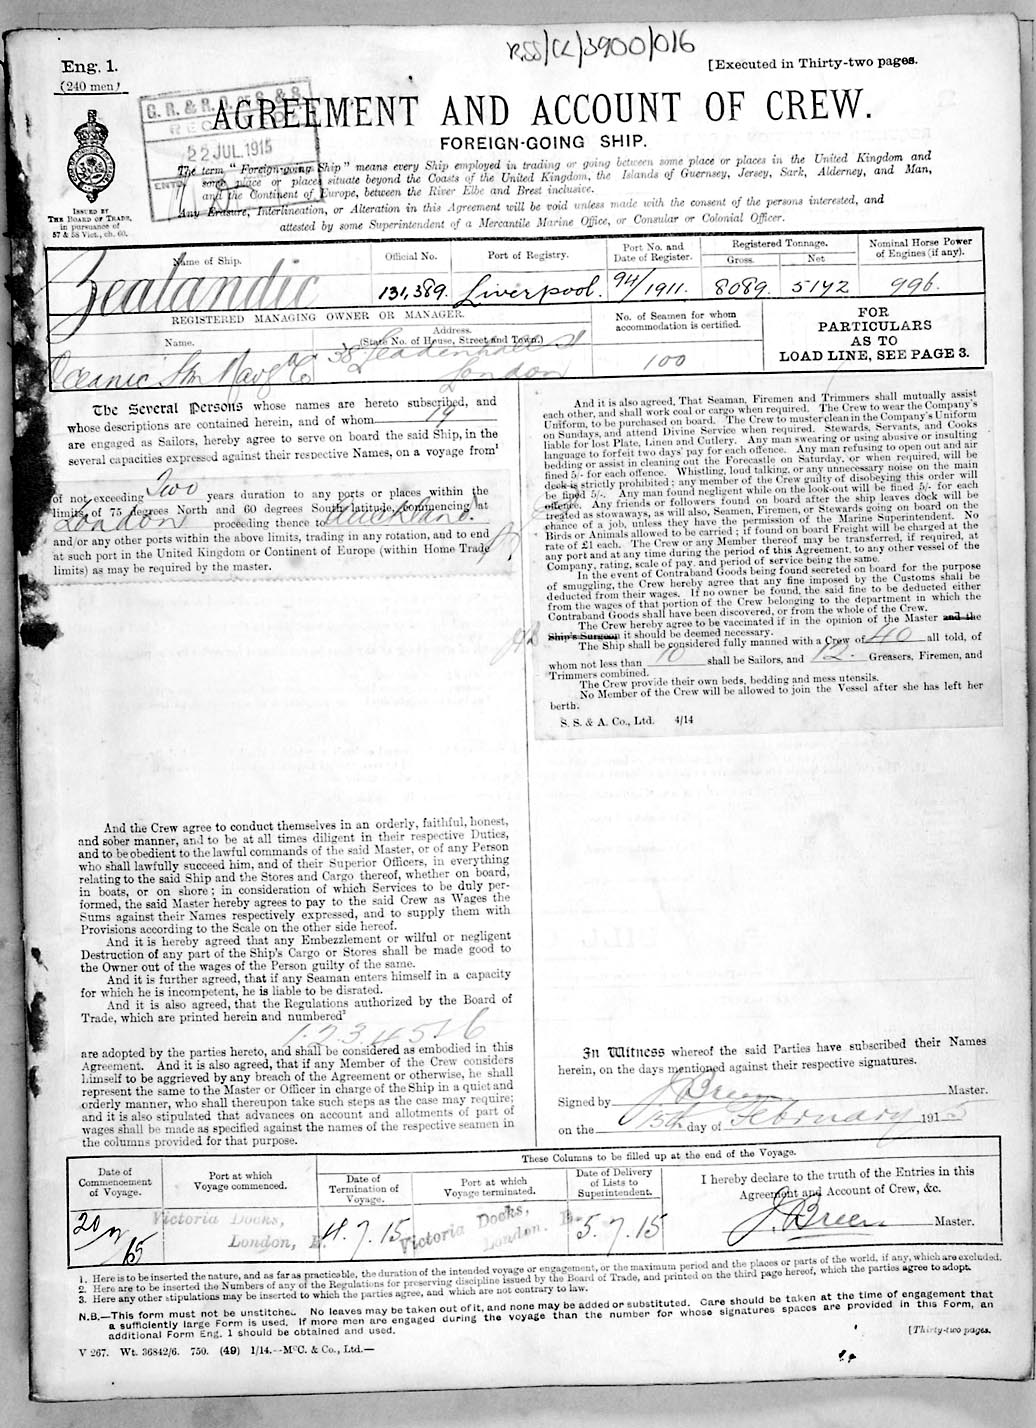 RSS/CL/3900/016
Eng. 1.
(240 men)
[Executed in Thirty-two pages.
G. R. & R. O. OF S. & S.
RECEIVED
22 JUL 1915
AGREEMENT AND ACCOUNT OF CREW.
FOREIGN-GOING SHIP.
The term "Foreign-going Ship" means every Ship employed in trading or going between some place or places in the United Kingdom and
some place or places situate beyond the Coasts of the United Kingdom, the Islands of Guernsey, Jersey, Sark, Alderney, and Man,
and the Continent of Europe, between the River Elbe and Brest inclusive.
Any Erasure, Interlineation, or Alteration in this Agreement will be void unless made with the consent of the persons interested, and
attested by some Superintendent of a Mercantile Marine Office, or Consular or Colonial Officer.
ISSUED BY
THE BOARD OF TRADE,
in pursuance of
57 & 58 Vict., ch. 60.
Name of Ship.
Official No.
Port of Registry.
Port No. and
Date of Register.
Registered Tonnage.
Gross.
Net
Nominal Horse Power
of Engines (if any).
Zealandic
131,389.
Liverpool.
94/1911.
8089.
5142
996.
REGISTERED MANAGING OWNER OR MANAGER.
Name.
Address.
(State No. of House, Street and Town.)
No. of Seamen for whom
accommodation is certified.
FOR
PARTICULARS
AS TO
LOAD LINE, SEE PAGE 3.
Oceanic Stm Navgn Co
38 Leadenhall St
London
100
The Several Persons whose names are hereto subscribed, and
whose descriptions are contained herein, and of whom 19
are engaged as Sailors, hereby agree to serve on board the said Ship, in the
several capacities expressed against their respective Names, on a voyage from¹
of not exceeding Two years duration to any ports or places within the
limits of 75 degrees North and 60 degrees South latitude, commencing at
London proceeding thence to Auckland.
and/or any other ports within the above limits, trading in any rotation, and to end
at such port in the United Kingdom or Continent of Europe (within Home Trade
limits) as may be required by the master.
And the Crew agree to conduct themselves in an orderly, faithful, honest,
and sober manner, and to be at all times diligent in their respective Duties,
and to be obedient to the lawful commands of the said Master, or of any Person
who shall lawfully succeed him, and of their Superior Officers, in everything
relating to the said Ship and the Stores and Cargo thereof, whether on board,
in boats, or on shore; in consideration of which Services to be duly per-
formed, the said Master hereby agrees to pay to the said Crew as Wages the
Sums against their Names respectively expressed, and to supply them with
Provisions according to the Scale on the other side hereof.
And it is hereby agreed that any Embezzlement or wilful or negligent
Destruction of any part of the Ship's Cargo or Stores shall be made good to
the Owner out of the wages of the Person guilty of the same.
And it is further agreed, that if any Seaman enters himself in a capacity
for which he is incompetent, he is liable to be disrated.
And it is also agreed, that the Regulations authorized by the Board of
Trade, which are printed herein and numbered²
1.2.3.4.5+6
are adopted by the parties hereto, and shall be considered as embodied in this
Agreement. And it is also agreed, that if any Member of the Crew considers
himself to be aggrieved by any breach of the Agreement or otherwise, he shall
represent the same to the Master or Officer in charge of the Ship in a quiet and
orderly manner, who shall thereupon take such steps as the case may require;
and it is also stipulated that advances on account and allotments of part of
wages shall be made as specified against the names of the respective seamen in
the columns provided for that purpose.
And it is also agreed, That Seaman, Firemen and Trimmers shall mutually assist
each other, and shall work coal or cargo when required. The Crew to wear the Company's
Uniform, to be purchased on board. The Crew to muster clean in the Company's Uniform
on Sundays, and attend Divine Service when required. Stewards, Servants, and Cooks
liable for lost Plate, Linen and Cutlery. Any man swearing or using abusive or insulting
language to forfeit two days' pay for each offence. Any man refusing to open out and air
bedding or assist in cleaning out the Forecastle on Saturday, or when required, will be
fined 5/- for each offence. Whistling, loud talking, or any unnecessary noise on the main
deck is strictly prohibited; any member of the Crew guilty of disobeying this order will
be fined 5/-. Any man found negligent while on the look-out will be fined 5/- for each
offence. Any friends or followers found on board after the ship leaves dock will be
treated as stowaways, as will also, Seamen, Firemen, or Stewards going on board on the
chance of a job, unless they have the permission of the Marine Superintendent. No
Birds or Animals allowed to be carried; if found on board Freight will be charged at the
rate of £1 each. The Crew or any Member thereof may be transferred, if required, at
any port and at any time during the period of this Agreement, to any other vessel of the
Company, rating, scale of pay, and period of service being the same.
In the event of Contraband Goods being found secreted on board for the purpose
of smuggling, the Crew hereby agree that any fine imposed by the Customs shall be
deducted from their wages. If no owner be found, the said fine to be deducted either
from the wages of that portion of the Crew belonging to the department in which the
Contraband Goods shall have been discovered, or from the whole of the Crew.
The Crew hereby agree to be vaccinated if in the opinion of the Master and the
Ship's Surgeon it should be deemed necessary.
The Ship shall be considered fully manned with a Crew of 40 all told, of
whom not less than 10 shall be Sailors, and 12. Greasers, Firemen, and
Trimmers combined.
The Crew provide their own beds, bedding and mess utensils.
No Member of the Crew will be allowed to join the Vessel after she has left her
berth.
S. S. & A. Co., Ltd. 4/14
In Witness whereof the said Parties have subscribed their Names
herein, on the days mentioned against their respective signatures.
Signed by J Breen Master.
on the 15th day of February 1915
These Columns to be filled up at the end of the Voyage.
Date of
Commencement
of Voyage.
Port at which
Voyage commenced.
Date of
Termination of
Voyage.
Port at which
Voyage terminated.
Date of Delivery
of Lists to
Superintendent.
I hereby declare to the truth of the Entries in this
Agreement and Account of Crew, &c.
Victoria Docks,
London, E.
4.7.15
Victoria Docks,
London. E.
5.7.15
J. Breen Master.
1. Here is to be inserted the nature, and as far as practicable, the duration of the intended voyage or engagement, or the maximum period and the places or parts of the world, if any, which are excluded.
2. Here are to be inserted the Numbers of any of the Regulations for preserving discipline issued by the Board of Trade, and printed on the third page hereof, which the parties agree to adopt.
3. Here any other stipulations may be inserted to which the parties agree, and which are not contrary to law.
N.B.—This form must not be unstitched. No leaves may be taken out of it, and none may be added or substituted. Care should be taken at the time of engagement that
a sufficiently large Form is used. If more men are engaged during the voyage than the number for whose signatures spaces are provided in this Form, an
additional Form Eng. 1 should be obtained and used.
[Thirty-two pages.
V 267. Wt. 36842/6. 750. (49) 1/14.—McC. & Co., Ltd.—